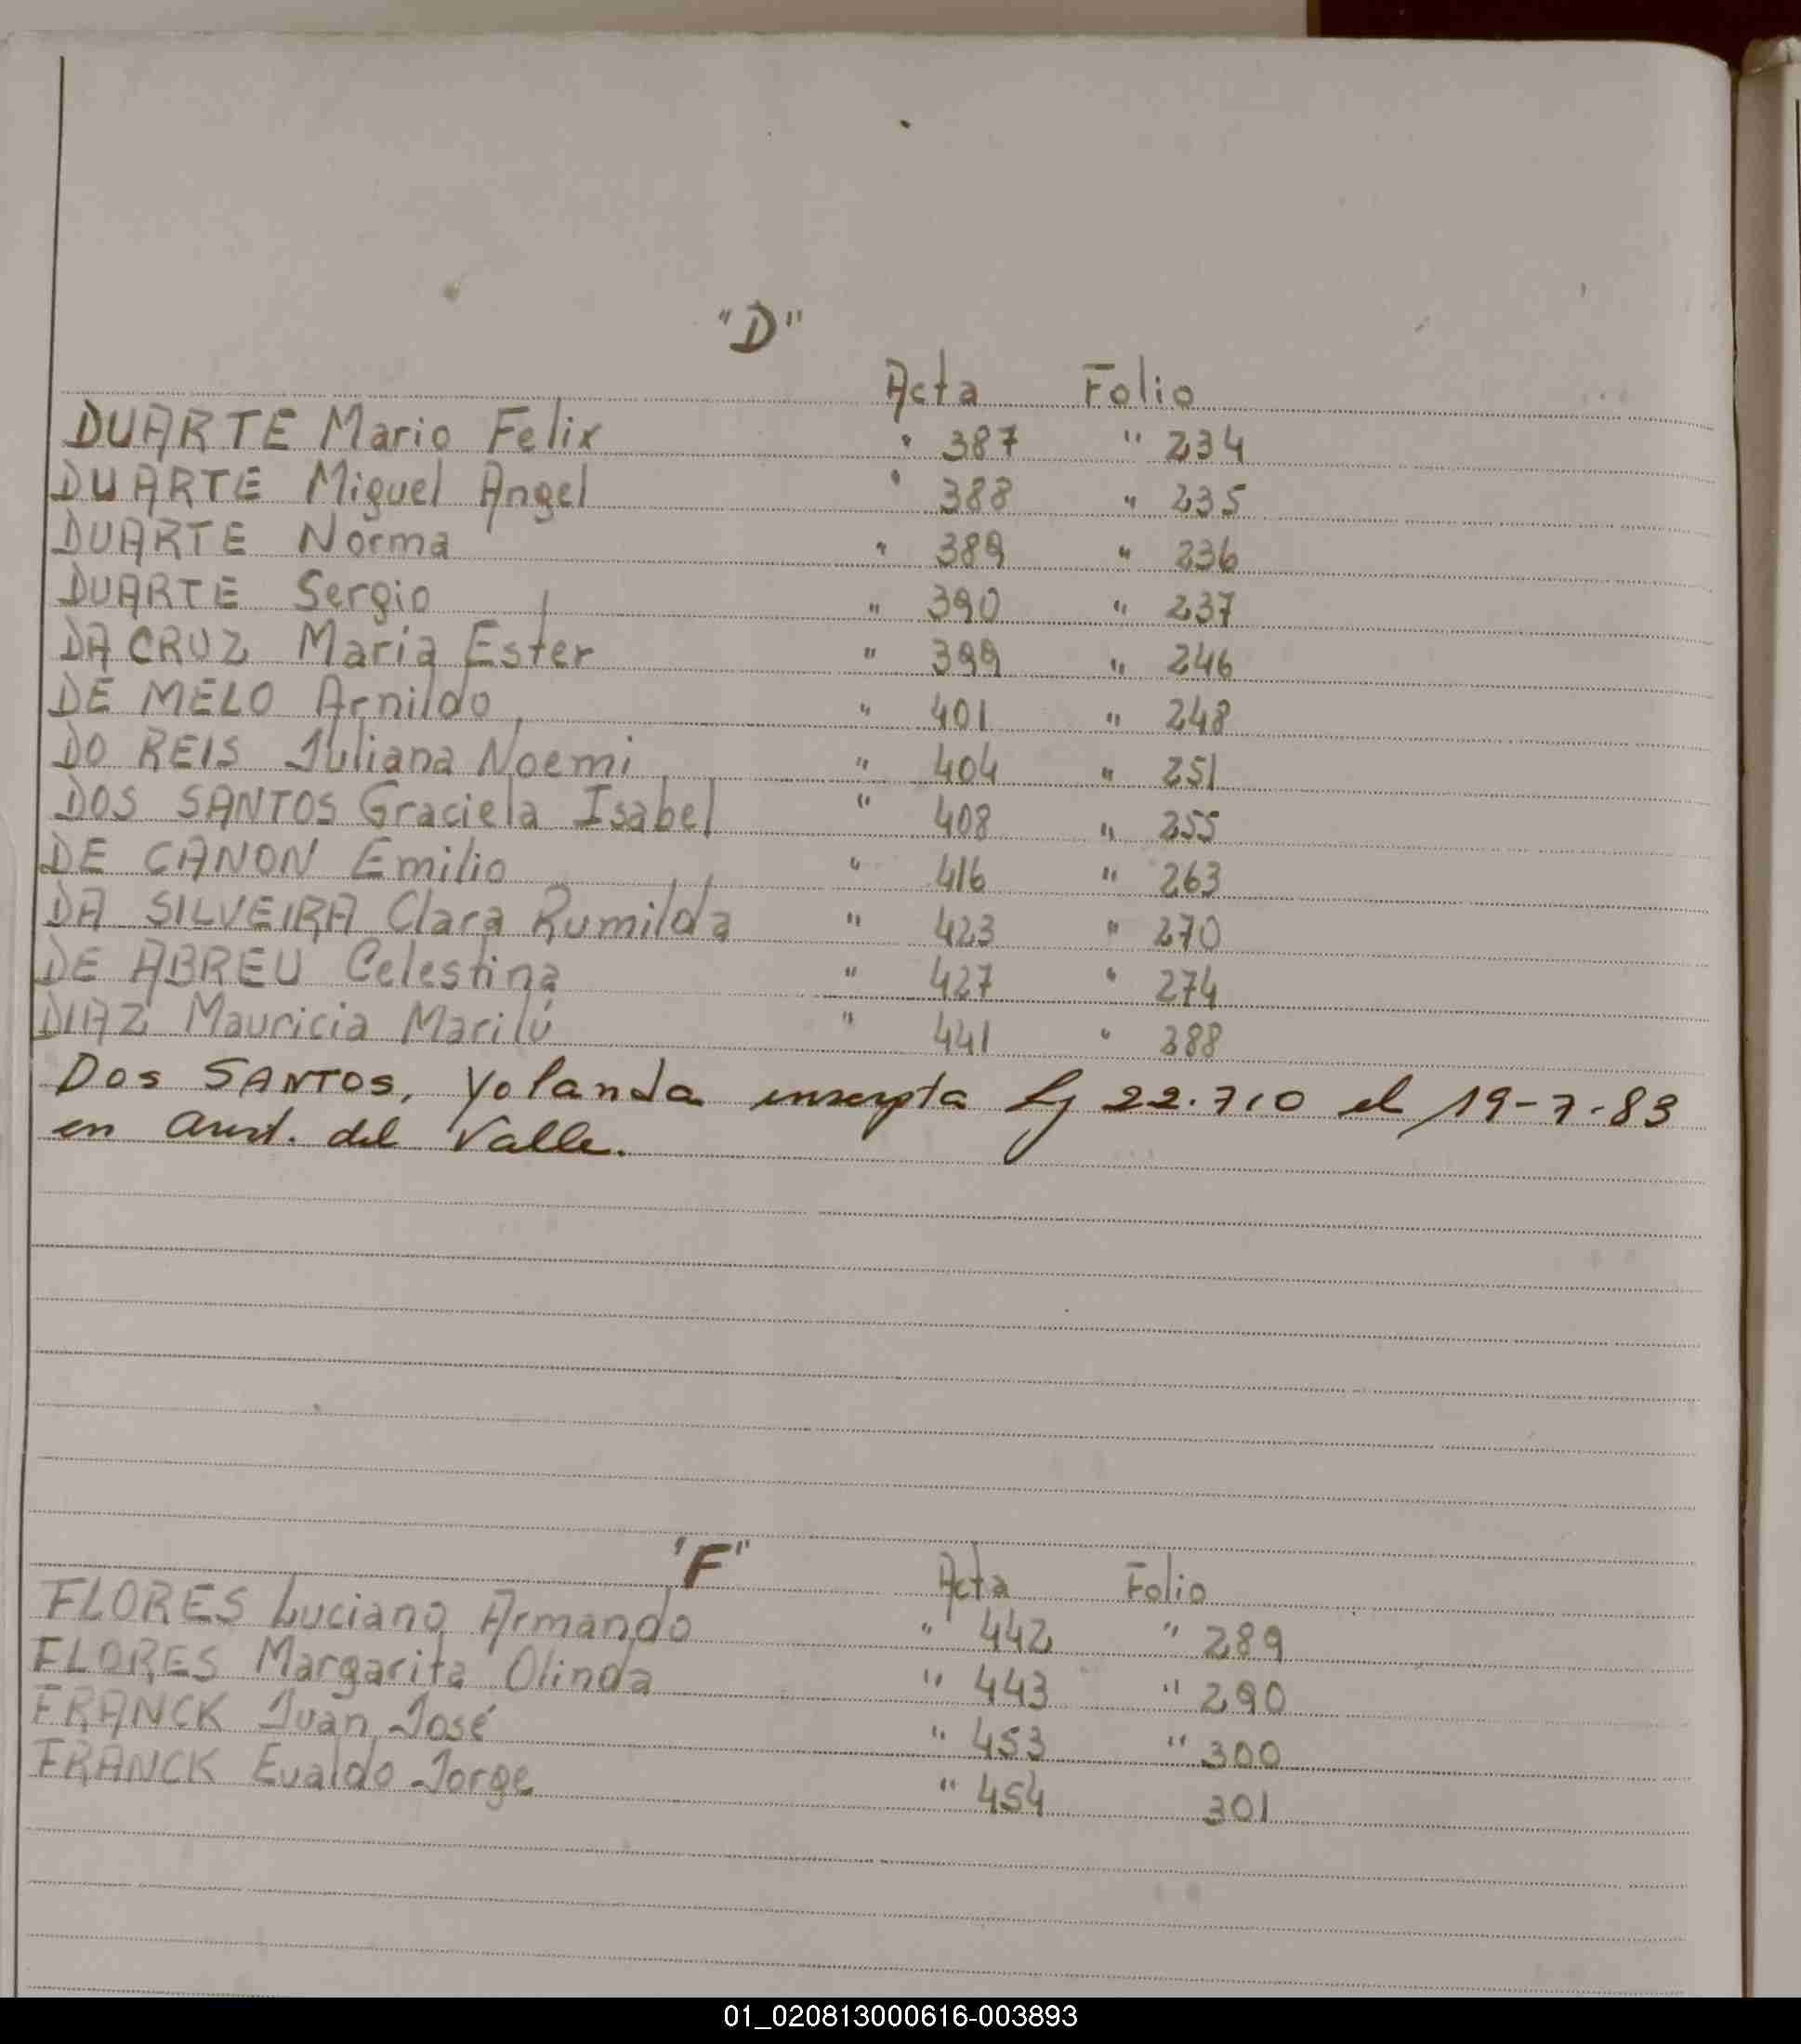 "D"
Acta Folio
DUARTE Mario Felix " 387 " 234
DUARTE Miguel Angel " 388 " 235
DUARTE Norma " 389 " 236
DUARTE Sergio " 390 " 237
DA CRUZ Maria Ester " 399 " 246
DE MELO Arnildo " 401 " 248
DO REIS Juliana Noemi " 404 " 251
DOS SANTOS Graciela Isabel " 408 " 255
DE CANON Emilio " 416 " 263
DA SILVEIRA Clara Rumilda " 423 " 270
DE ABREU Celestina " 427 " 274
DIAZ Mauricia Marilú " 441 " 388
DOS SANTOS, Yolanda inscripta Ley 22.710 el 19-7-83
en Arist. del Valle.
"F"
Acta Folio
FLORES Luciano Armando " 442 " 289
FLORES Margarita Olinda " 443 " 290
FRANCK Juan José " 453 " 300
FRANCK Evaldo Jorge " 454 301
01_020813000616-003893